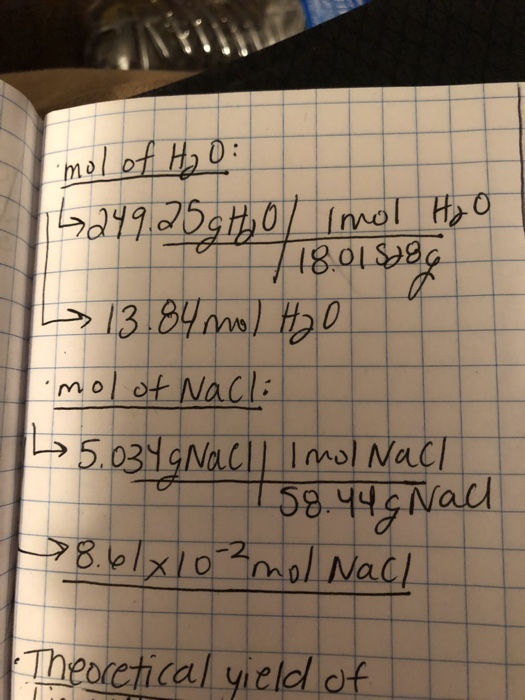 · mol of H2O:
↳ 249.25g H2O / 1 mol H2O
18.01528g
↳ 13.84 mol H2O
· mol of NaCl:
↳ 5.034 g NaCl | 1 mol NaCl
58.44 g NaCl
→ 8.61 x 10⁻² mol NaCl
· Theoretical yield of